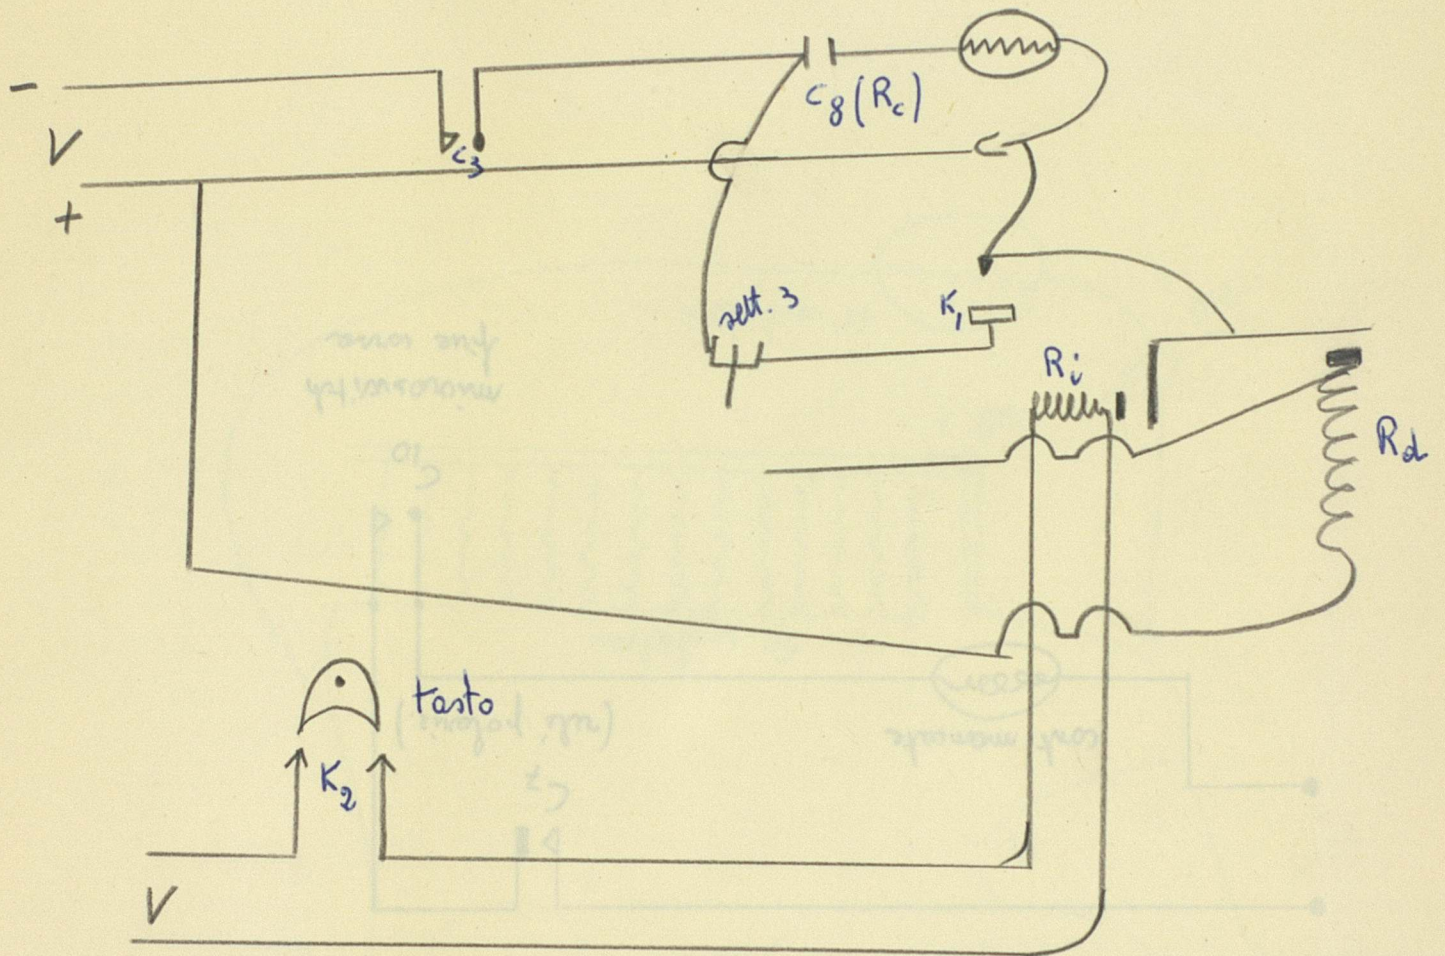 -
V
+
c3
c8 (Rc)
sett. 3
K1
Ri
Rd
tasto
K2
V
C10
C7